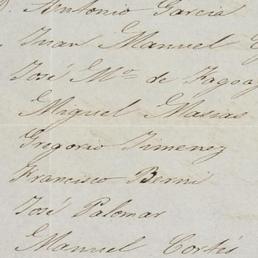 D. Antonio Garcia
Juan Manuel
José Mª de Fagoa
Miguel Masias
Gregorio Jimenez
Francisco Berni
José Palomar
Manuel Cortés